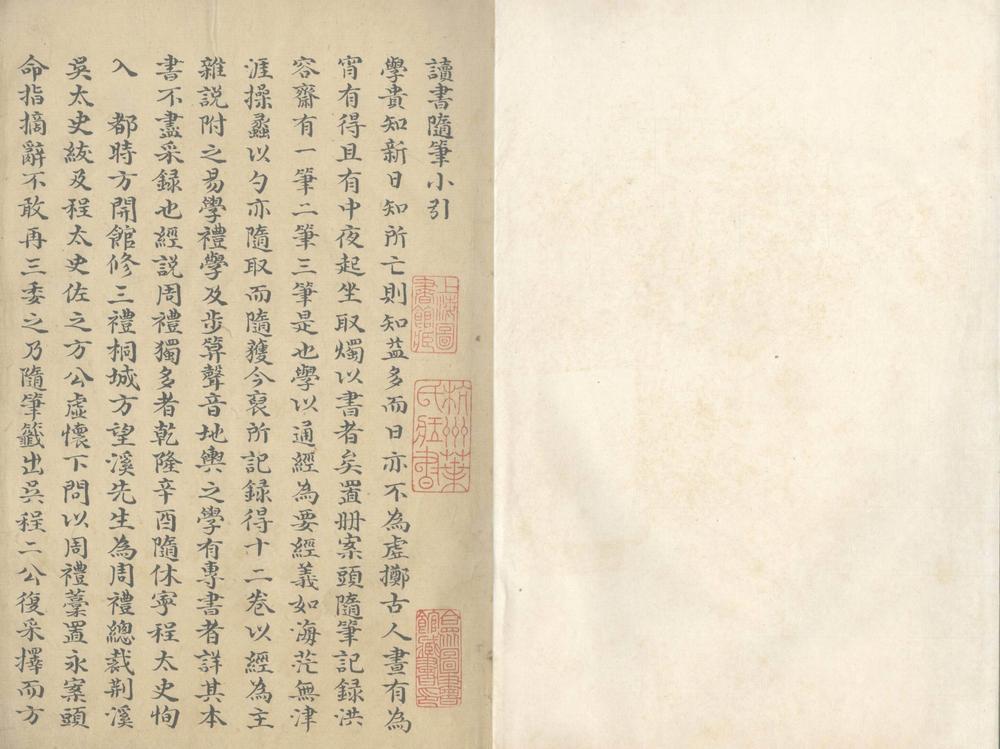 讀書隨筆小引
學貴知新日知所亡則知益多而日亦不為虛擲古人晝有為
宵有得且有中夜起坐取燭以書者矣置册案頭隨筆記録洪
容齋有一筆二筆三筆是也學以通經為要經義如海茫無津
涯操蠡以勺亦隨取而隨獲今裒所記録得十二卷以經為主
雜説附之易學禮學及步算聲音地輿之學有專書者詳其本
書不盡采録也經説周禮獨多者乾隆辛酉隨休寧程太史恂
入 都時方開館修三禮桐城方望溪先生為周禮總裁荆溪
吳太史紱及程太史佐之方公虛懷下問以周禮藁置永案頭
命指摘辭不敢再三委之乃隨筆籤出吳程二公復采擇而方
上海圖書館藏
杭州葉氏藏書
合眾圖書館藏書印